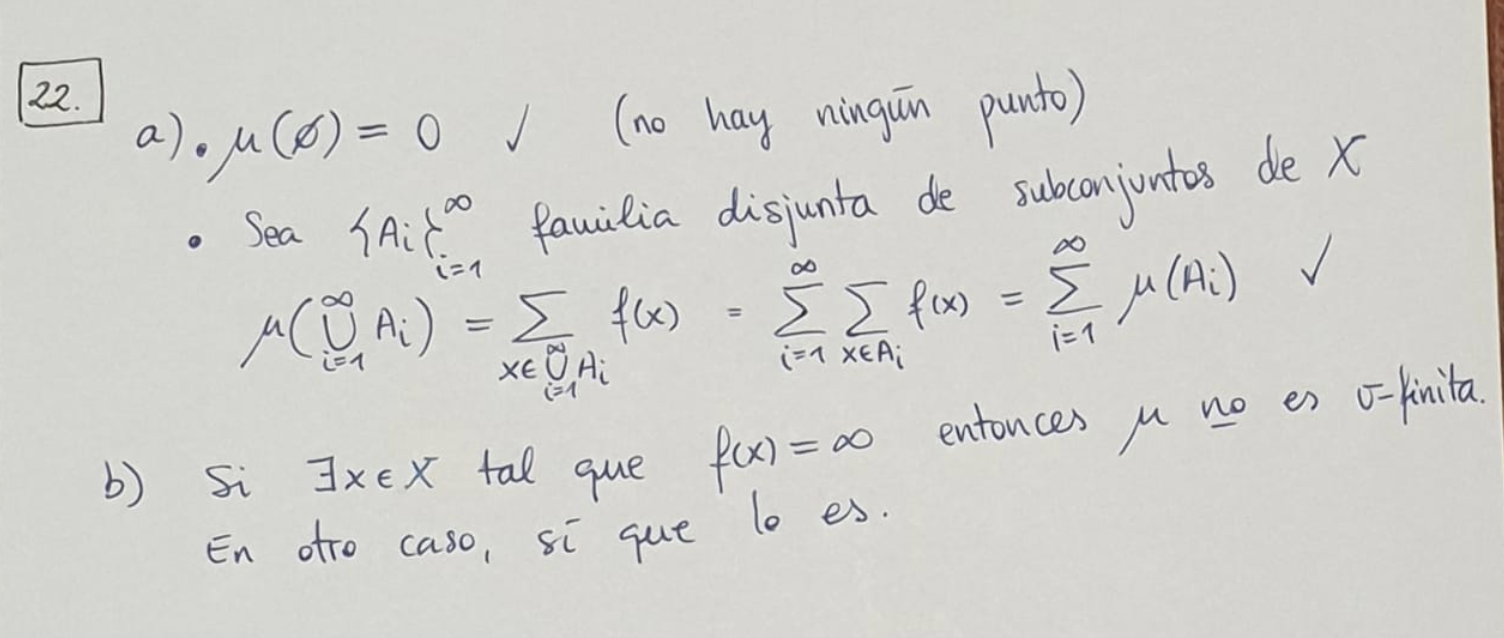 22.
a). • μ(∅) = 0 ✓ (no hay ningún punto)
• Sea {Ai}_{i=1}^{∞} familia disjunta de subconjuntos de X
μ(⋃_{i=1}^{∞} Ai) = ∑_{x∈⋃_{i=1}^{∞} Ai} f(x) = ∑_{i=1}^{∞} ∑_{x∈Ai} f(x) = ∑_{i=1}^{∞} μ(Ai) ✓
b) Si ∃x∈X tal que f(x) = ∞ entonces μ no es σ-finita.
En otro caso, sí que lo es.